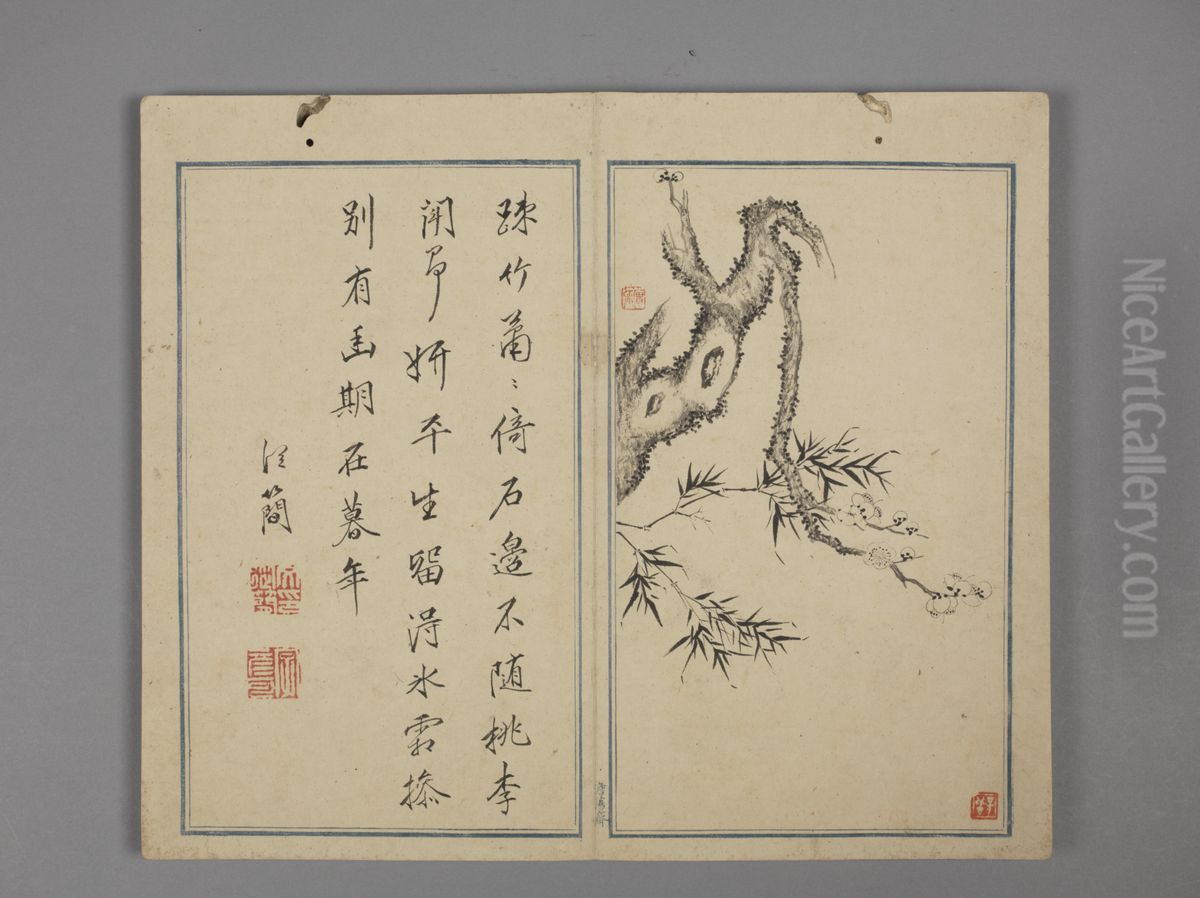 踈竹蕭〻倚石邊不随桃李
争妍平生留得氷霜操
別有幽期在暮年
從簡
NiceArtGallery.com